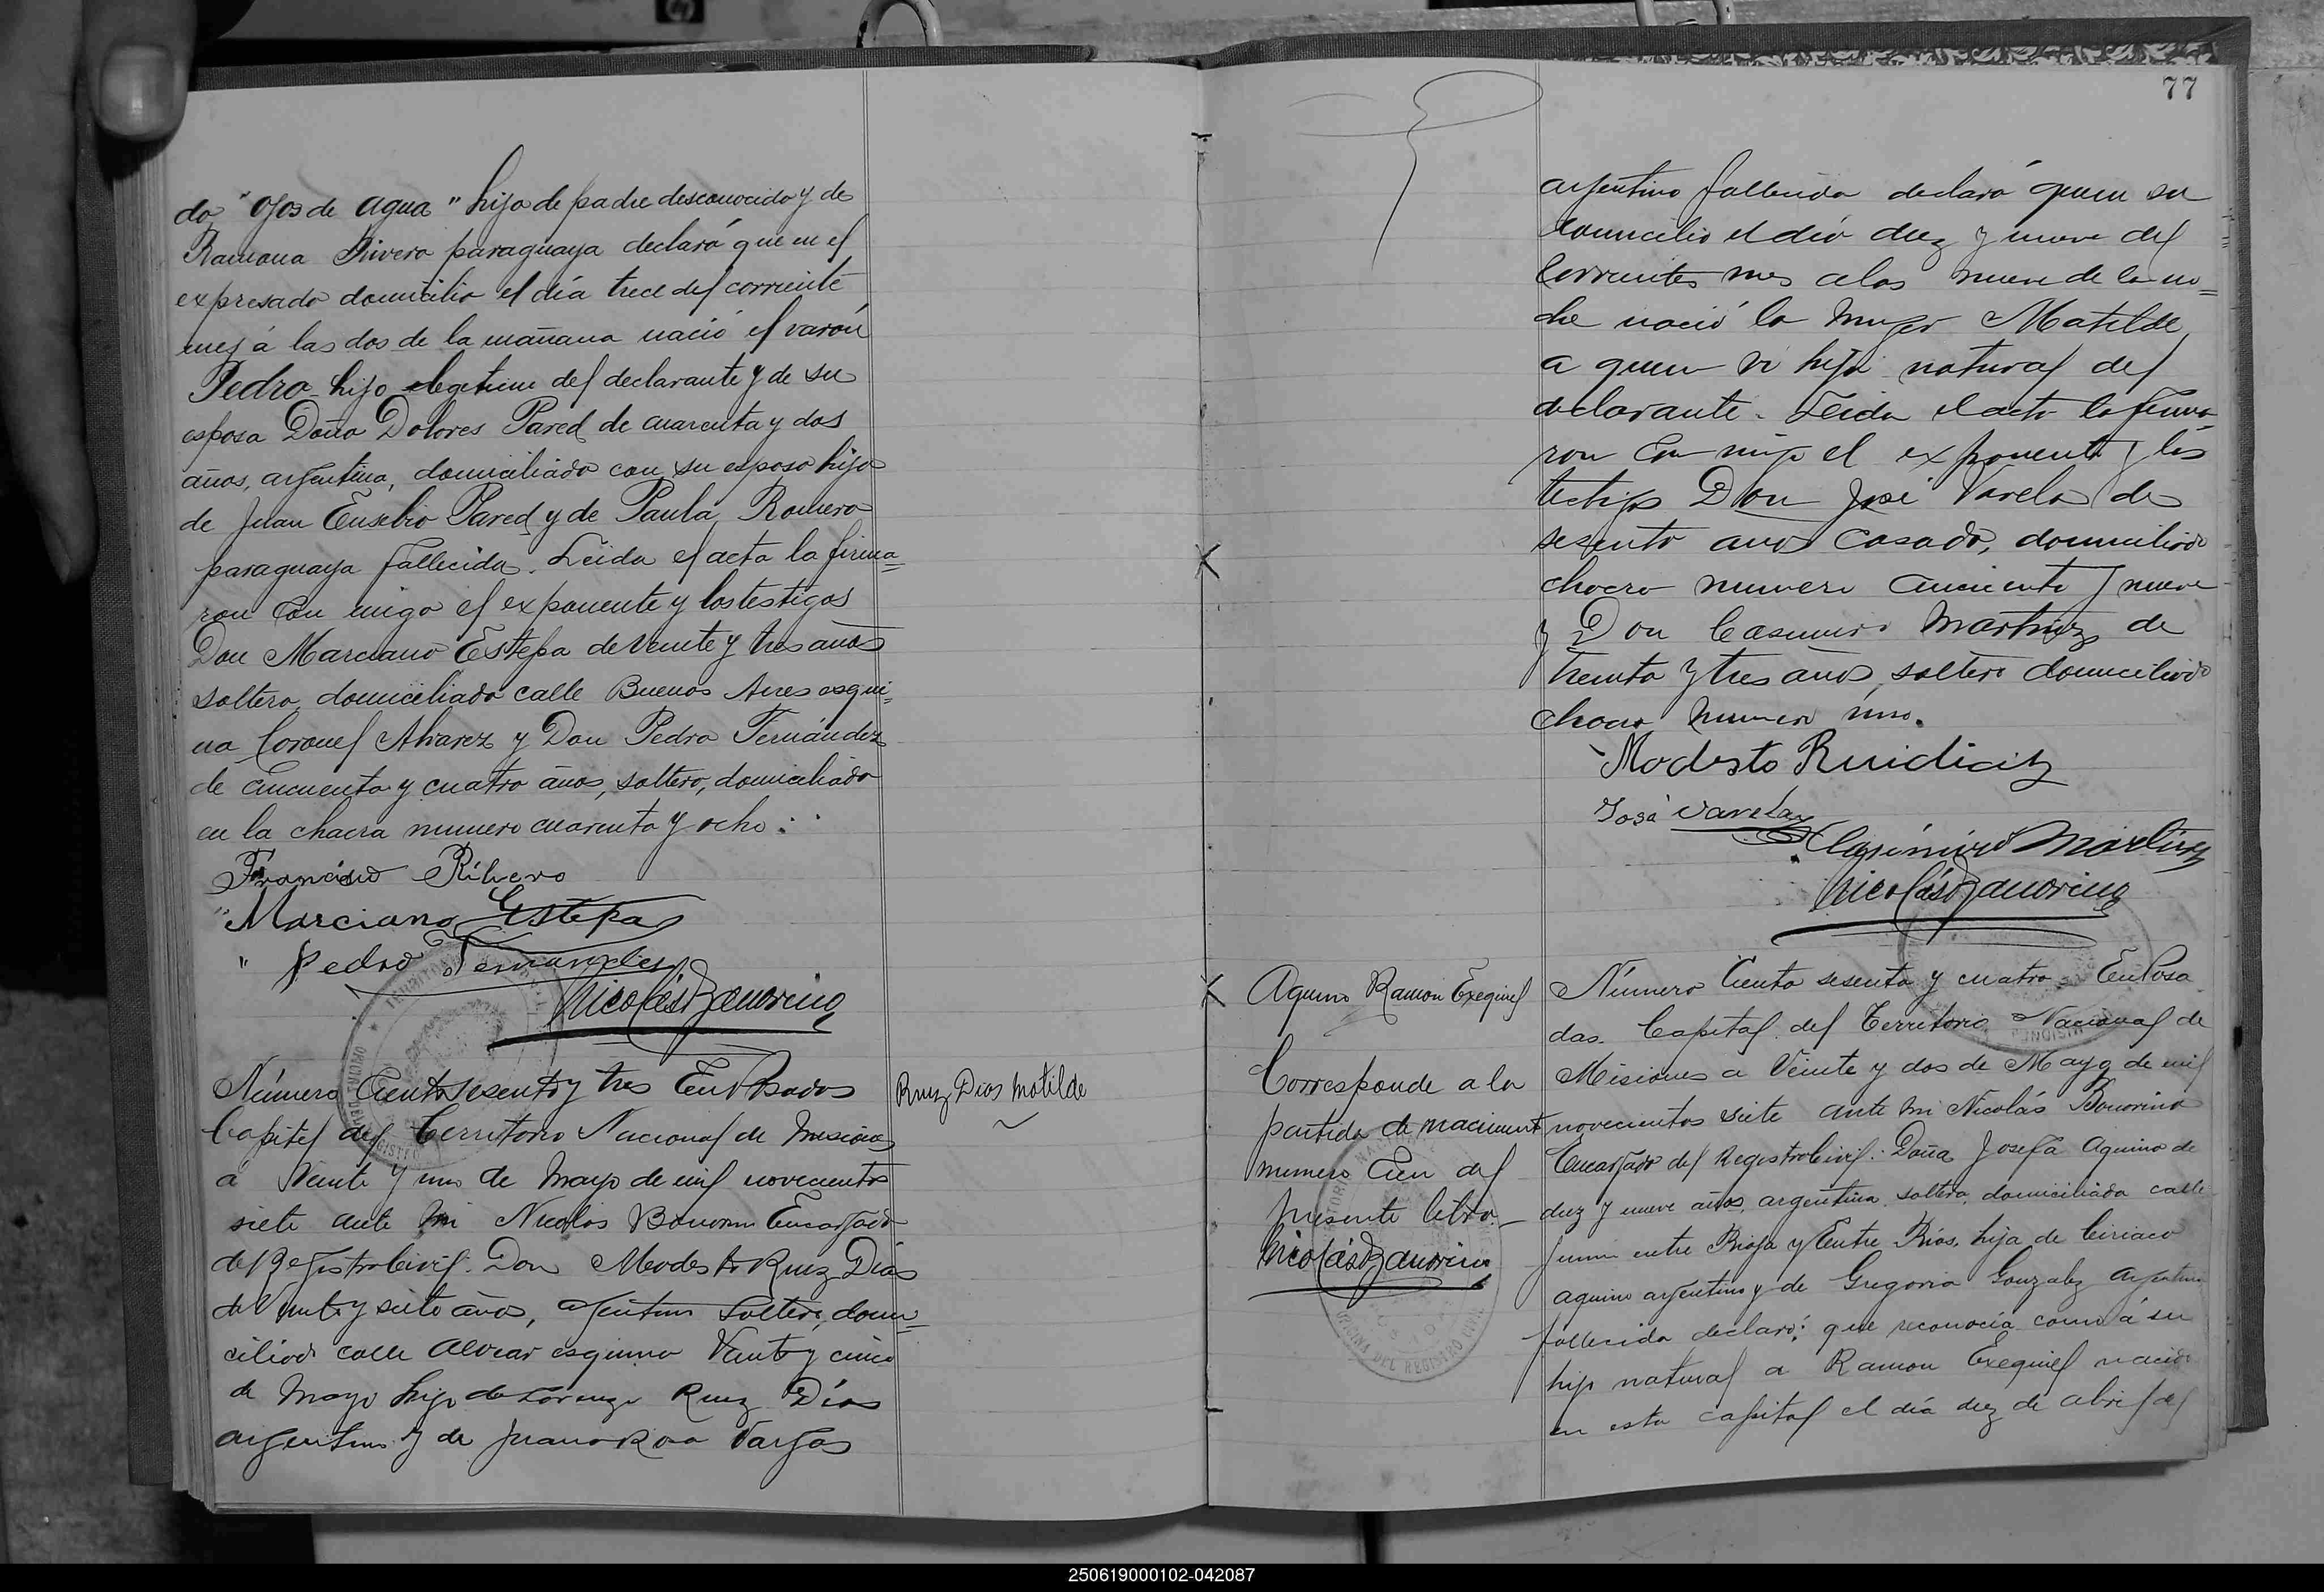 do "Ojos de agua" hijo de padre desconocido y de
Ramona Rivero paraguaya declaró que en el
expresado domicilio el día trece del corriente
mes á las dos de la mañana nació el varón
Pedro hijo legitimo del declarante y de su
esposa Doña Dolores Pared de cuarenta y dos
años, argentina, domiciliada con su esposo hija
de Juan Eusebio Pared y de Paula Romero
paraguaya fallecida. Leida el acta la firma=
ron con migo el exponente y los testigos
Don Marciano Estepa de veinte y tres años
soltero, domiciliado calle Buenos Aires esqui=
na Coronel Alvarez y Don Pedro Fernández
de cincuenta y cuatro años, soltero, domiciliado
en la chacra numero cuarenta y ocho.
Francisco Ribero
Marciano Estepa
" Pedro Fernandes
Nicolás Bonorino
Número Ciento sesenta y tres En Posadas
Capital del Territorio Nacional de Misiones
á Veinte y uno de Mayo de mil novecientos
siete ante mi Nicolas Bonorino Encargado
del Registro Civil. Don Modesto Ruiz Dias
de Veinte y siete años, argentino soltero, domi=
ciliado calle Alvear esquina Veinte y cinco
de Mayo hijo de Lorenzo Ruiz Días
argentino y de Juana Rosa Vargas
Ruiz Dias Matilde
77
argentina fallecida declaró que en su
domicilio el día diez y nueve del
corriente mes a las nueve de la no=
che nació la mujer Matilde
a quien vi hija natural del
declarante. Leida el acta la firma
ron con migo el exponente y los
testigos Don José Varela de
sesenta anos casado, domiciliado
chacra numero cincuenta y nueve
y Don Casimiro Martinez de
treinta y tres años, soltero domiciliado
chacra numero uno.
Modesto Ruidiaz
José Varela
Casimiro Martinez
Nicolás Bonorino
Aquino Ramon Exequiel
Corresponde a la
partida de nacimient
numero Cien del
presente libro.
Nicolás Bonorino
Número Ciento sesenta y cuatro. En Posa
das. Capital del Territorio Nacional de
Misiones a Veinte y dos de Mayo de mil
novecientos siete ante mi Nicolás Bonorino
Encargado del Registro Civil: Doña Josefa Aquino de
diez y nueve años, argentina soltera, domiciliada calle
Junin entre Rioja y Entre Rios, hija de Ciriaco
Aquino argentino y de Gregoria Gonzalez argentina
fallecida declaró: que reconocía como á su
hijo natural a Ramon Exequiel nacido
en esta capital el día diez de abril del
250619000102-042087